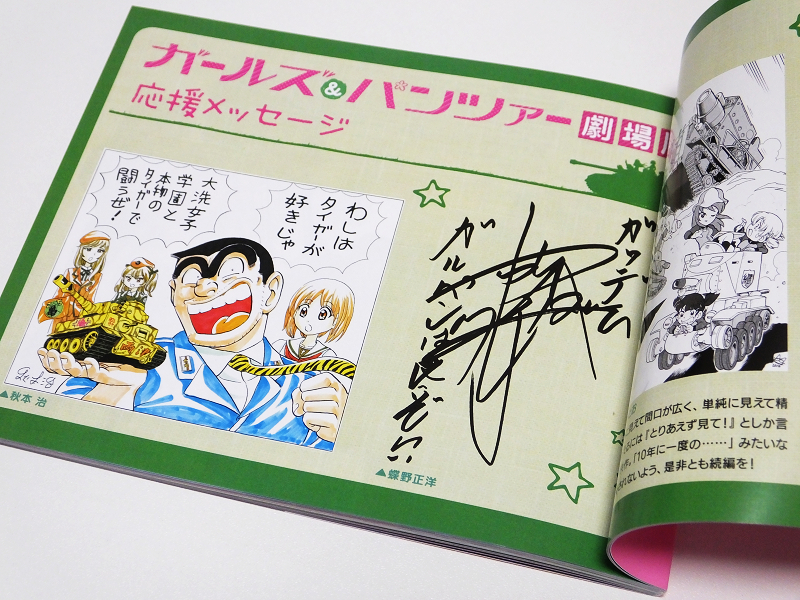 ガールズ&パンツァー 劇場
応援メッセージ
わしは
タイガーが
好きじゃ
大洗女子
学園と
本物の
タイガーで
闘うぜ!
▲秋本 治
ガッデム
ガルパンは
▲蝶野正洋
えて間口が広く、単純に見えて精
には『とりあえず見て!』としか言
。「10年に一度の……」みたいな
れないよう、是非とも続編を!